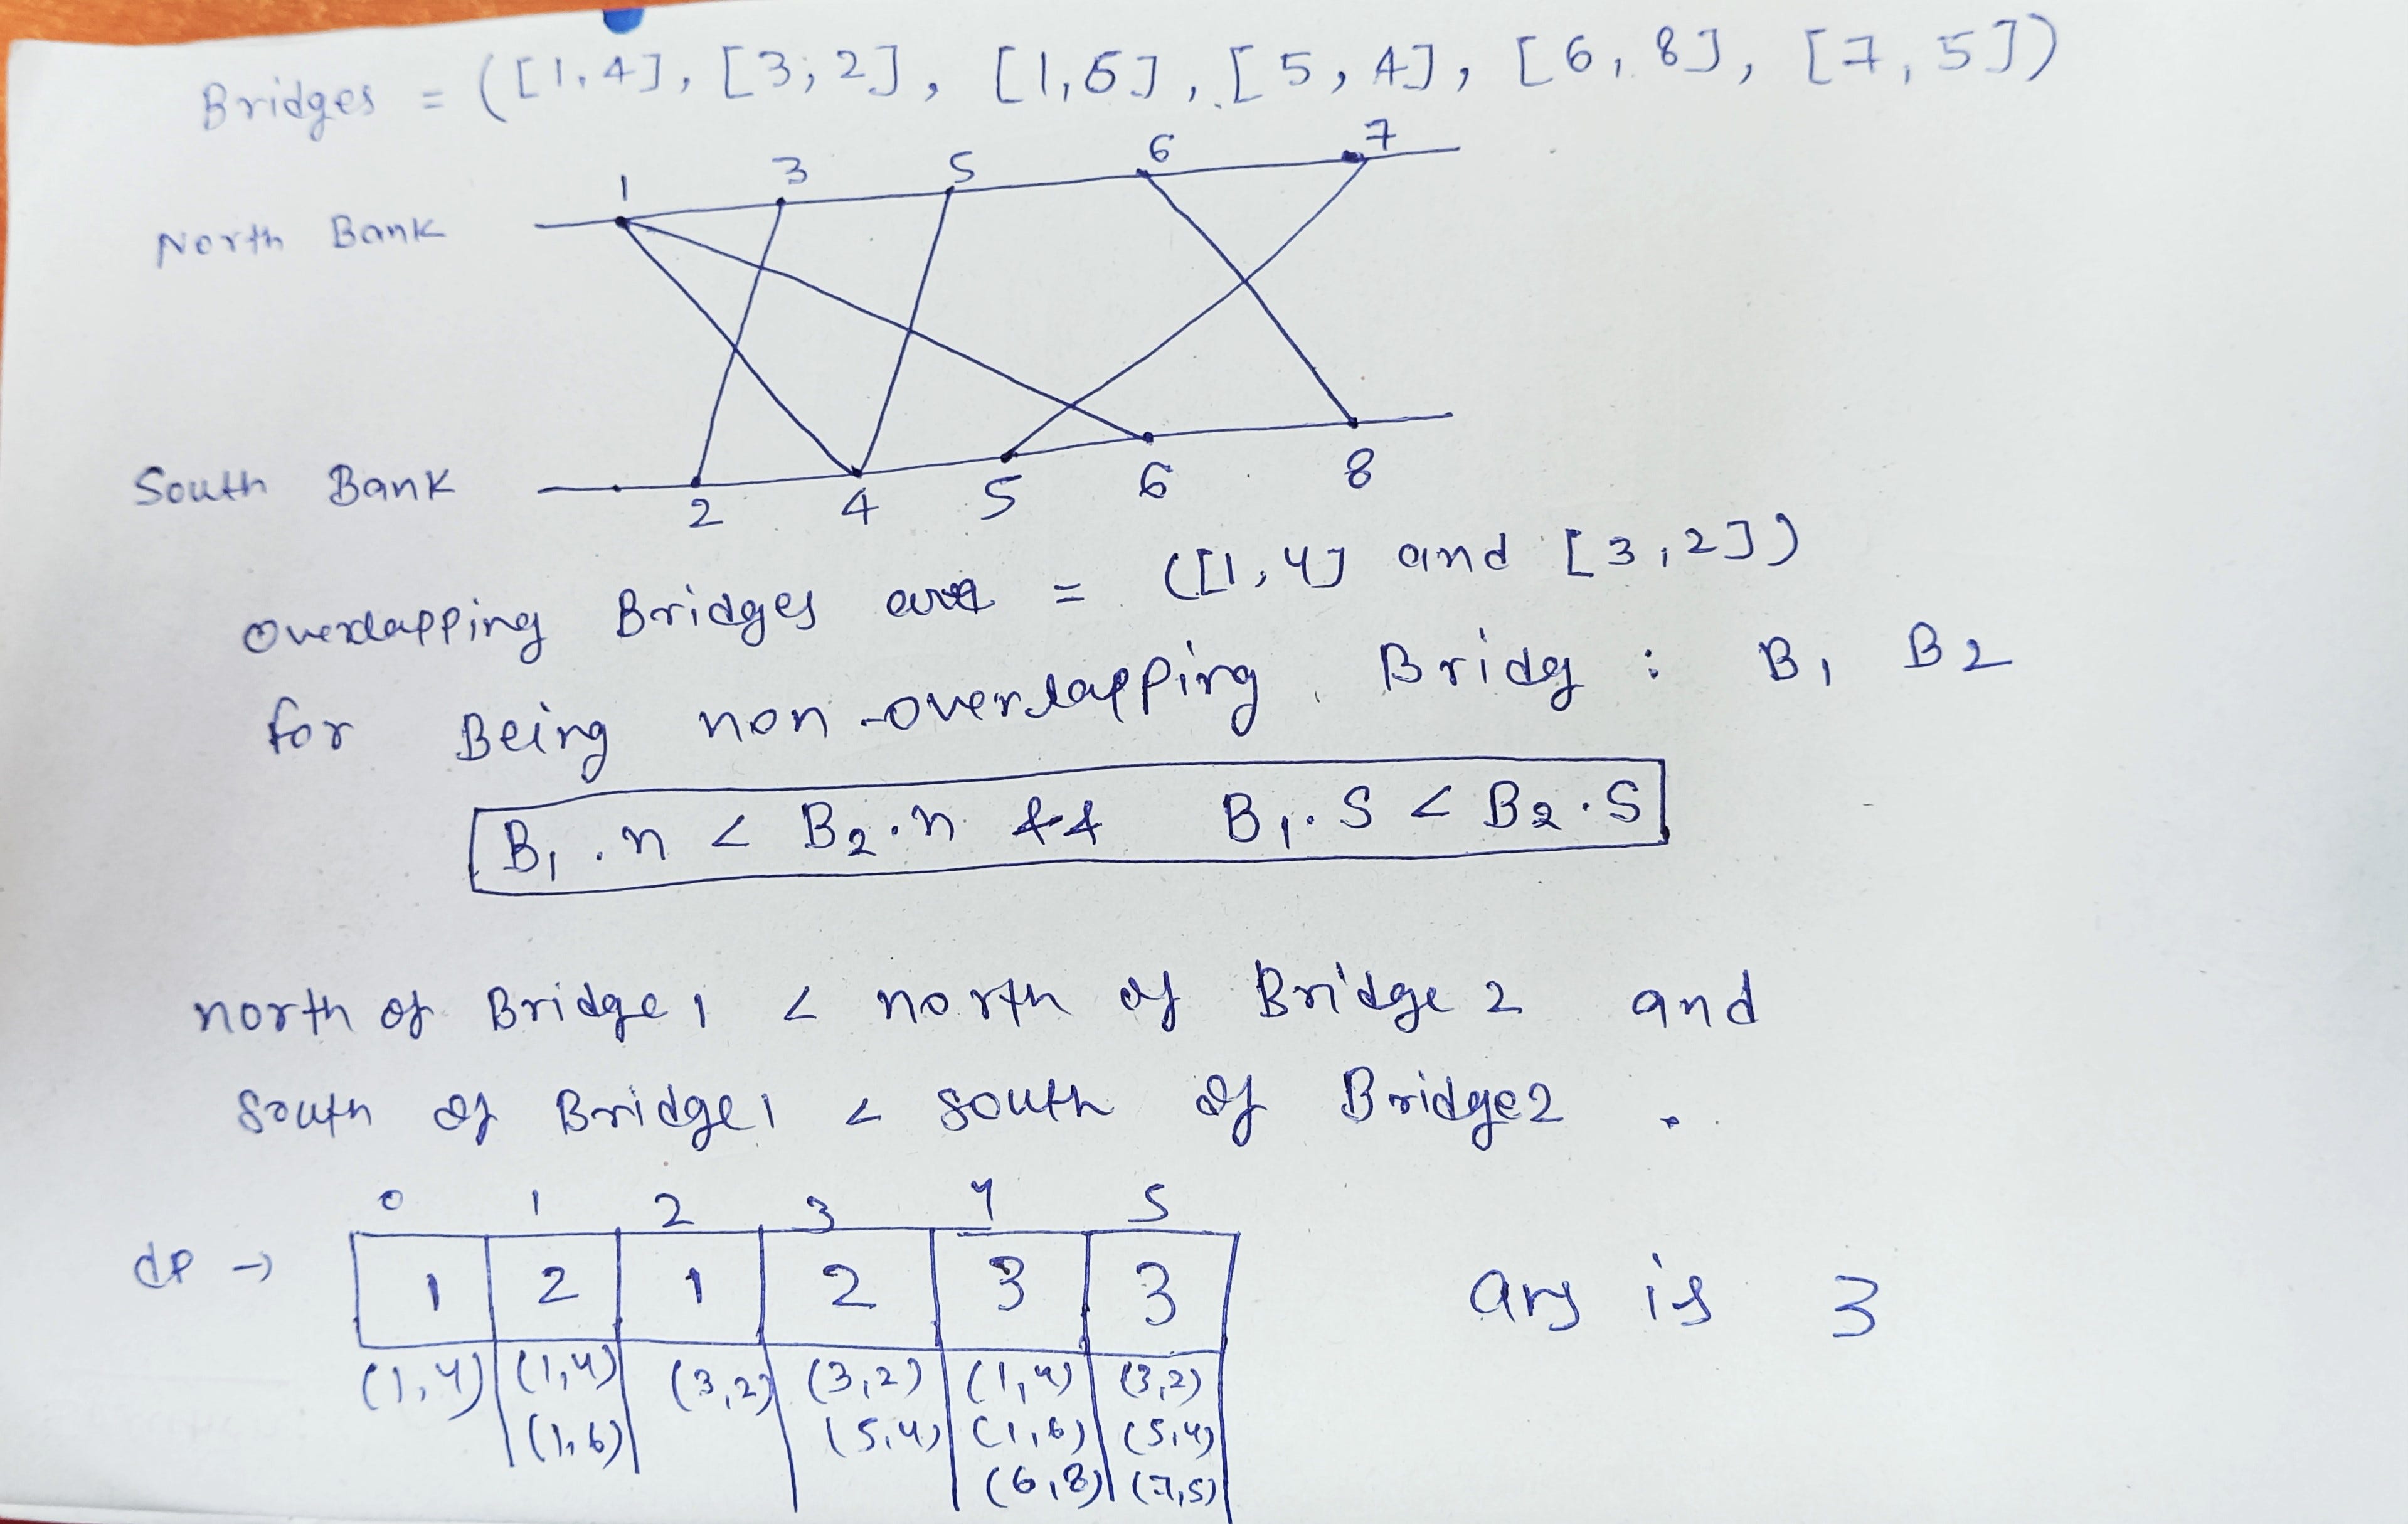 Bridges = ([1,4], [3,2], [1,6], [5,4], [6,8], [7,5])
1 3 5 6 7
North Bank
South Bank
2 4 5 6 8
Overlapping Bridges are = ([1,4] and [3,2])
for Being non-overlapping Bridg : B1 B2
B1.n < B2.n && B1.S < B2.S
north of Bridge 1 < north of Bridge 2 and
South of Bridge1 < south of Bridge2 .
0 1 2 3 4 5
dp → 1 2 1 2 3 3 ans is 3
(1,4) (1,4) (3,2) (3,2) (1,4) (3,2)
(1,6) (5,4) (1,6) (5,4)
(6,8) (7,5)